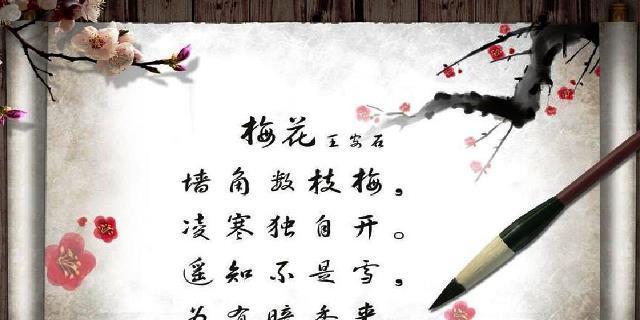 梅花 王安石
墙角数枝梅，
凌寒独自开。
遥知不是雪，
为有暗香来